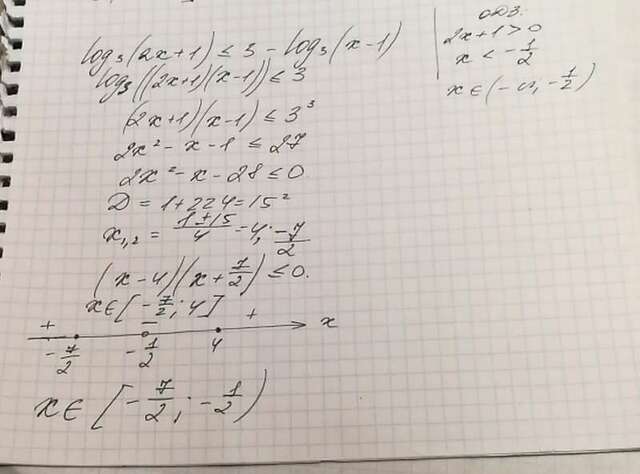 log₃(2x+1) ≤ 3 - log₃(x-1)
log₃((2x+1)(x-1)) ≤ 3
(2x+1)(x-1) ≤ 3³
2x² - x - 1 ≤ 27
2x² - x - 28 ≤ 0
D = 1 + 224 = 15²
x₁,₂ = (1±15)/4 = 4; -7/2
(x-4)(x+7/2) ≤ 0.
x∈[-7/2; 4]
+ - + x
-7/2 -1/2 4
x∈[-7/2; -1/2)
ОДЗ:
2x+1>0
x < -1/2
x∈(-∞, -1/2)